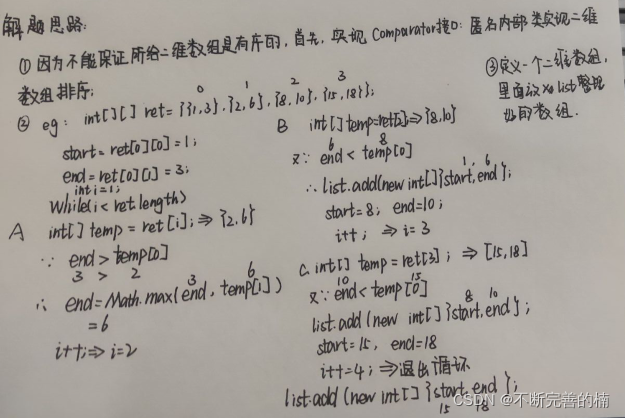 解题思路:
① 因为不能保证所给二维数组是有序的, 首先, 实现 Comparator接口: 匿名内部类实现二维
数组排序;
0 1 2 3
② eg: int[][] ret = {{1,3},{2,6},{8,10},{15,18}};
start = ret[0][0] = 1;
end = ret[0][1] = 3;
int i = 1;
while(i < ret.length)
A int[] temp = ret[i]; ⇒ {2,6}
∵ end > temp[0]
3 > 2
3 6
∴ end = Math.max(end, temp[1])
= 6
i++; ⇒ i=2
B int[] temp = ret[2] ⇒ {8,10}
6 8
又∵ end < temp[0]
1, 6
∴ list.add(new int[]{start,end};
start=8; end=10;
i++; ⇒ i=3
C. int[] temp = ret[3]; ⇒ [15,18]
10 15
又∵ end < temp[0]
8 10
list.add(new int[]{start,end};
start=15, end=18
i++=4; ⇒退出循环
list.add(new int[]{start,end};
15 18
③ 定义一个二维数组,
里面放 list 整理
好的数组.
CSDN @不断完善的楠